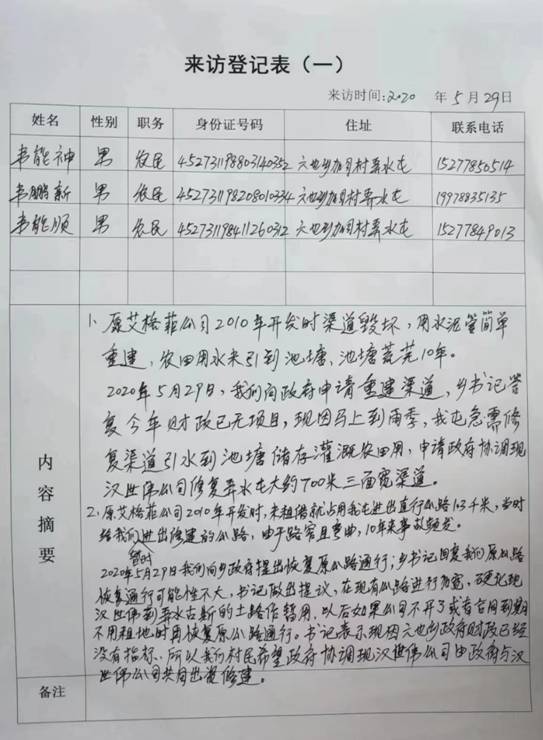 来访登记表（一）
来访时间:2020 年5月29日
姓名 性别 职务 身份证号码 住址 联系电话
韦能神 男 农民 452731198803140352 六也乡加司村弄水屯 15277850514
韦鹏新 男 农民 452731198208010334 六也乡加司村弄水屯 19978835135
韦能顺 男 农民 452731198411260312 六也乡加司村弄水屯 15277849013
内容摘要
1、原艾格菲公司2010年开发时渠道毁坏，用水泥管简单
重建，农田用水来引到池塘，池塘荒芜10年。
2020年5月29日，我们向政府申请重建渠道，乡书记答
复今年财政已无项目，现因马上到雨季，我屯急需修
复渠道引水到池塘储存灌溉农田用，申请政府协调现
汉世伟公司修复弄水屯大约700米三面宽渠道。
2、原艾格菲公司2010年开发时，未租借就占用我屯进出直行公路1.3千米，当时
给我们进出修建的公路，由于路窄且弯曲，10年来事故频发。
暂时
2020年5月29日我们向乡政府提出恢复原公路通行；乡书记回复我们原公路
恢复通行可能性不大，书记做出提议，在现有公路进行加宽，硬化现
汉世伟到弄水古新的土路作暂用，以后如果公司不开了或者合同到期
不用租地时再恢复原公路通行。书记表示现因六也乡政府财政已经
没有指标，所以我们村民希望政府协调现汉世伟公司由政府与汉
世伟公司共同出资修建。
备注